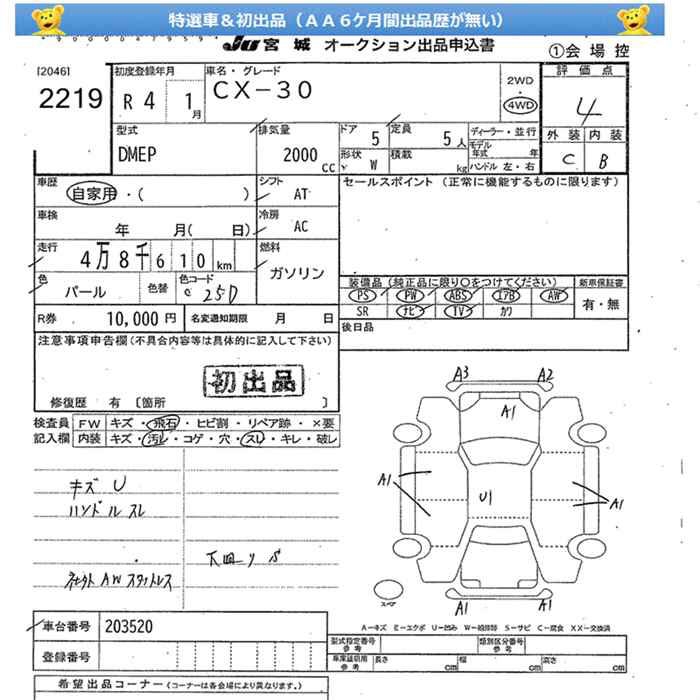 特選車＆初出品（ＡＡ６ケ月間出品歴が無い）
JU 宮城 オークション出品申込書
①会場控
[2046]
2219
初度登録年月
R 4 1月
車名・グレード
CX-30
2WD
・
4WD
評価点
4
外装 内装
C B
型式
DMEP
排気量
2000 CC
ドア 5
定員 5人
形状 W
積載 kg
ディーラー・並行
モデル年式 年
ハンドル 左・右
車歴
自家用・( )
シフト
AT
セールスポイント (正常に機能するものに限ります)
車検
年 月( 日)
冷房
AC
走行
4万8千610km
燃料
ガソリン
色
パール
色替
色コード
25D
装備品 (純正品に限り○をつけてください)
新車保証書
PS PW ABS エアB AW
SR ナビ TV カワ
有・無
R券 10,000円
名変通知期限 月 日
後日品
注意事項申告欄 (不具合内容等は具体的に記入して下さい)
初出品
修復歴 有〔箇所 〕
検査員記入欄
FW キズ・飛石・ヒビ割・リペア跡・×要
内装 キズ・汚レ・コゲ・穴・スレ・キレ・破レ
キズ U
ハンドル スレ
下回りS
AW スタットレス
A3 A2
A1
A1
U1
A1
A1 A1
スペア
A－キズ E－エクボ U－凹み W－補修跡 S－サビ C－腐食 XX－交換済
車台番号 203520
登録番号
型式指定番号 参考
類別区分番号 参考
車庫証明用 参考
長さ cm 幅 cm 高さ cm
希望出品コーナー (コーナーは各会場により異なります。)